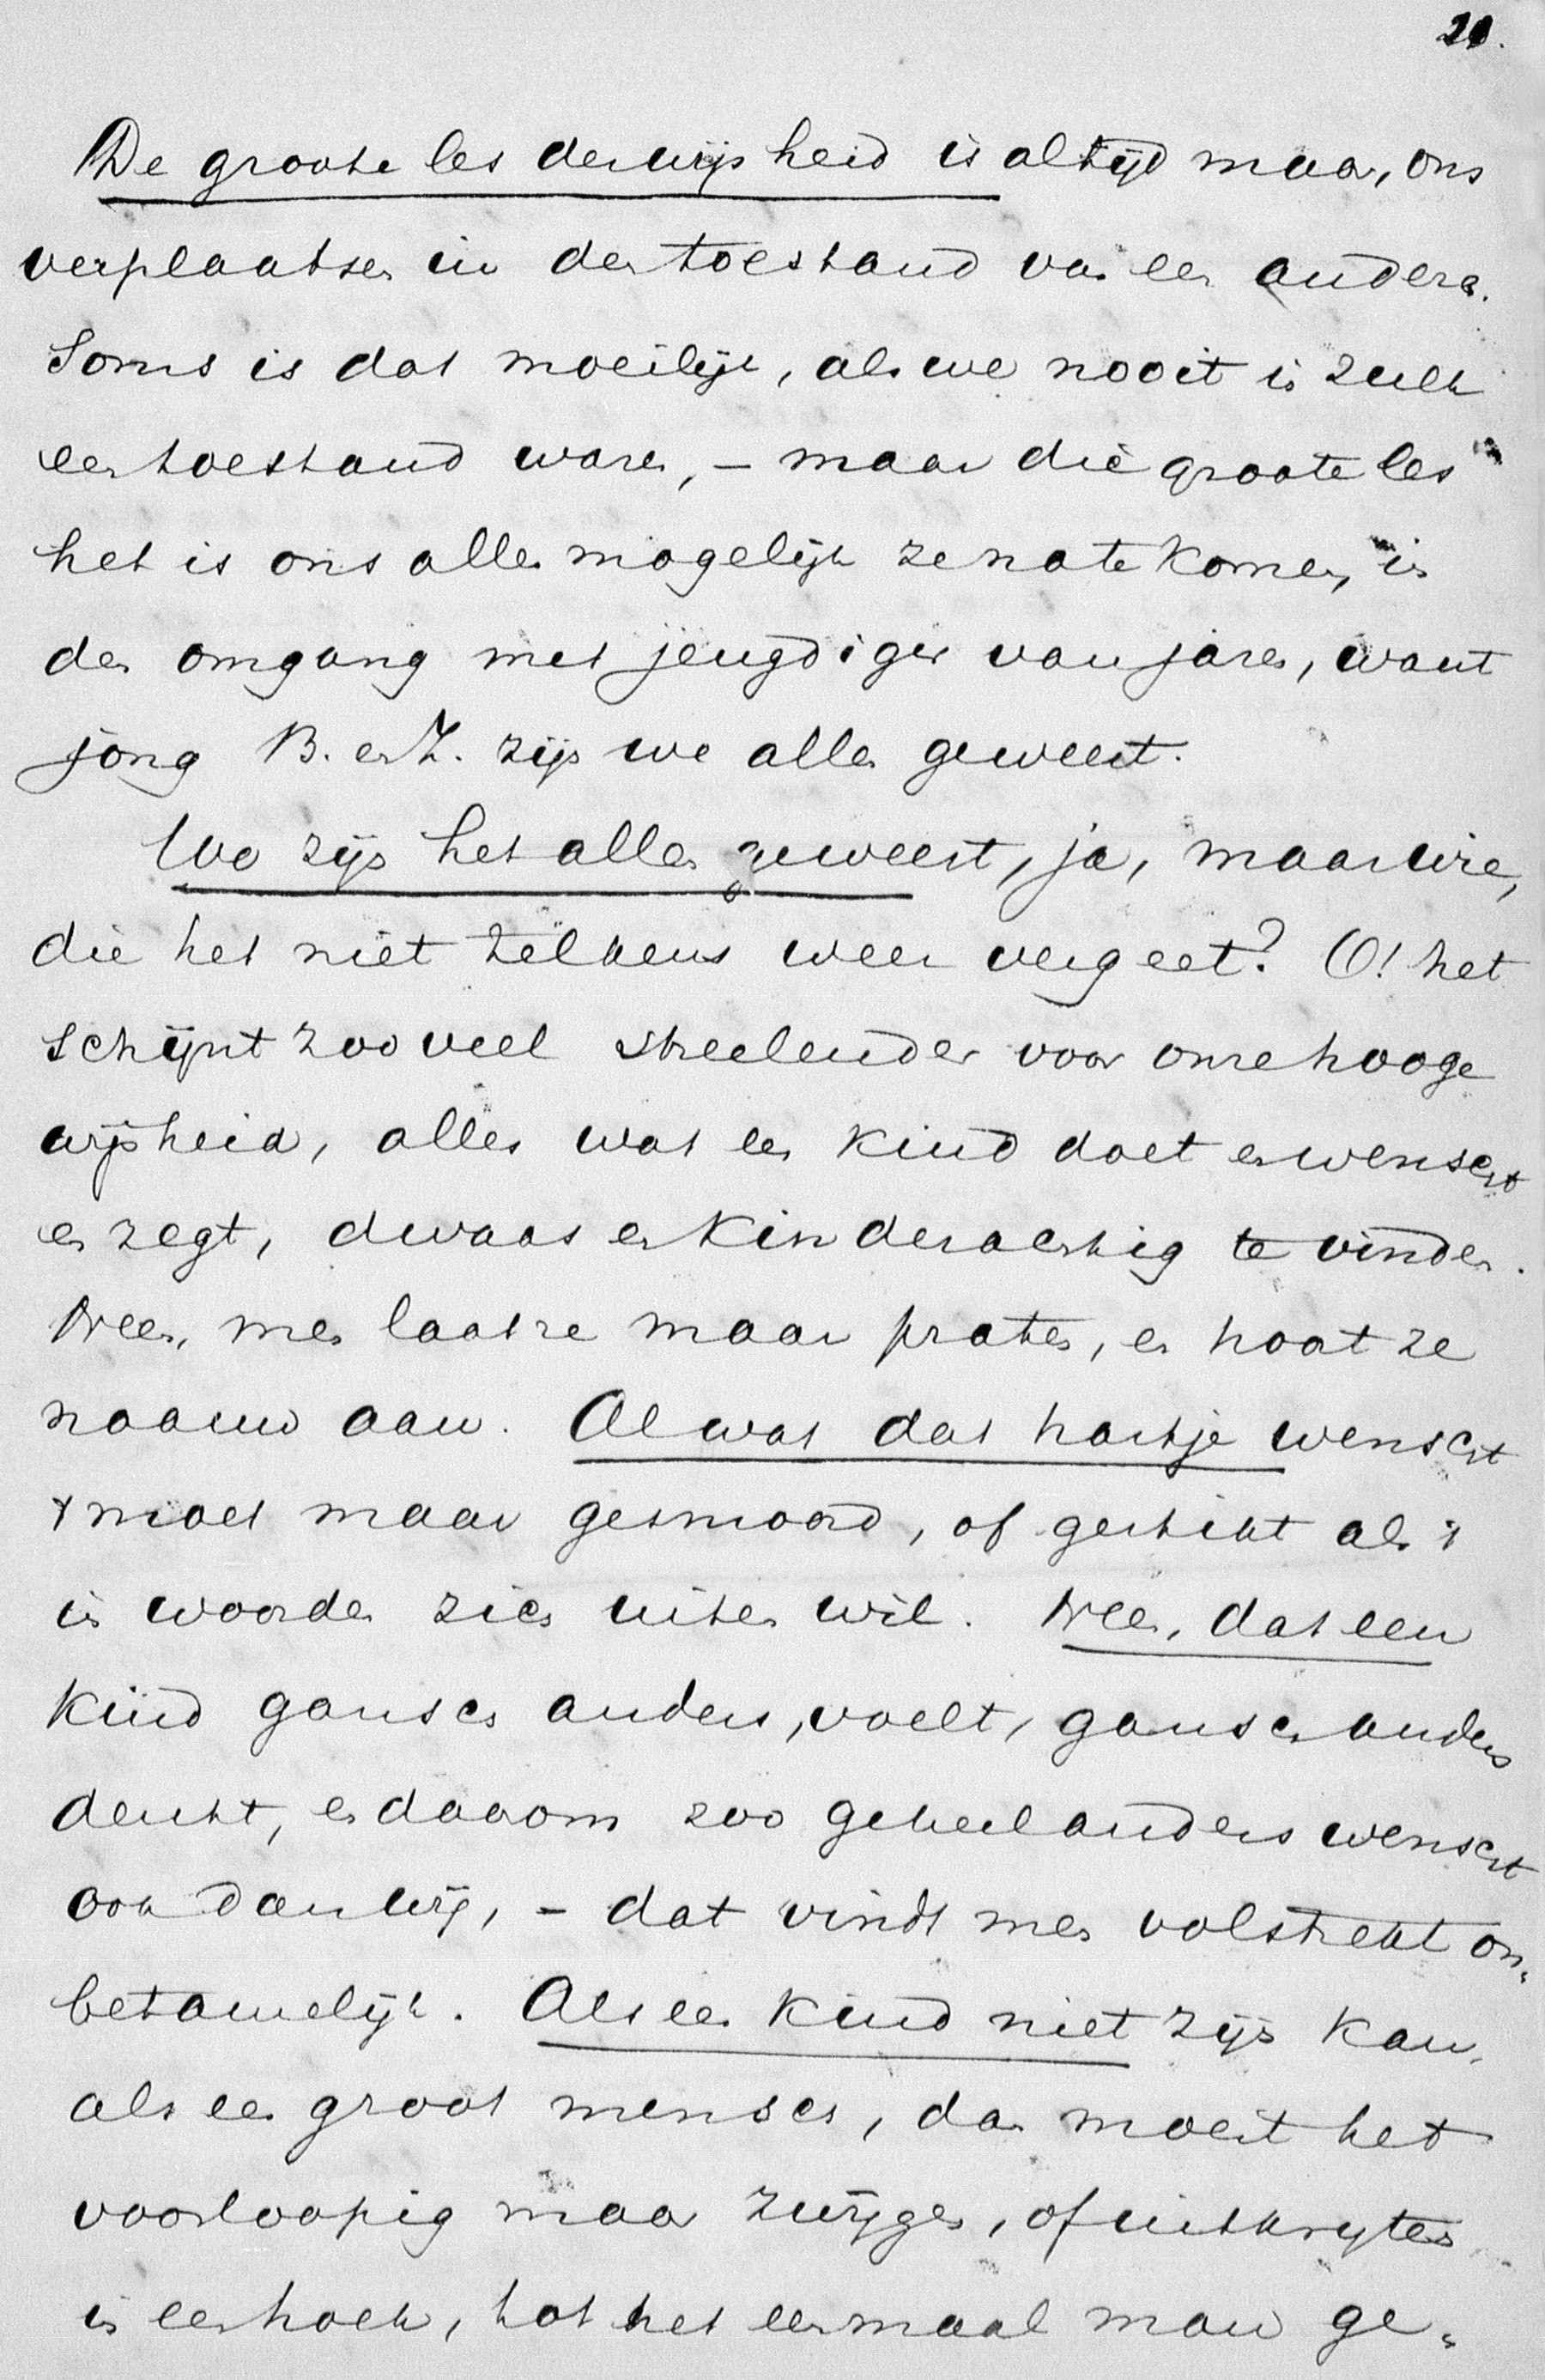 20.
De groote les der wijsheid is altijd maar, ons
verplaatsen in den toestand van een andere.
Soms is dat moeilijk, als we nooit in zulk
een toestand waren, – maar die groote les
het is ons allen mogelijk ze na te komen, in
den omgang met jeugdigen van jaren, want
jong B. en Z. zijn we allen geweest.
We zijn het allen geweest, ja, maar wie,
die het niet telkens weer vergeet? O! het
schijnt zoo veel streelender voor onze hooge
wijsheid, alles wat een kind doet en wenscht
en zegt, dwaas en kinderachtig te vinden.
Neen, men laat ze maar praten, en hoort ze
naauw aan. Al wat dat hartje wenscht
't moet maar gesmoord, of gestikt als 't
in woorden zich uiten wil. Neen, dat een
kind gansch anders, voelt, gansch anders
denkt, en daarom zoo geheel anders wenscht
ook dan wij, – dat vindt men volstrekt on-
betamelijk. Als een kind niet zijn kan,
als een groot mensch, dan moest het
voorloopig maar zwijgen, of uitkrijten
in een hoek, tot het eenmaal man ge-